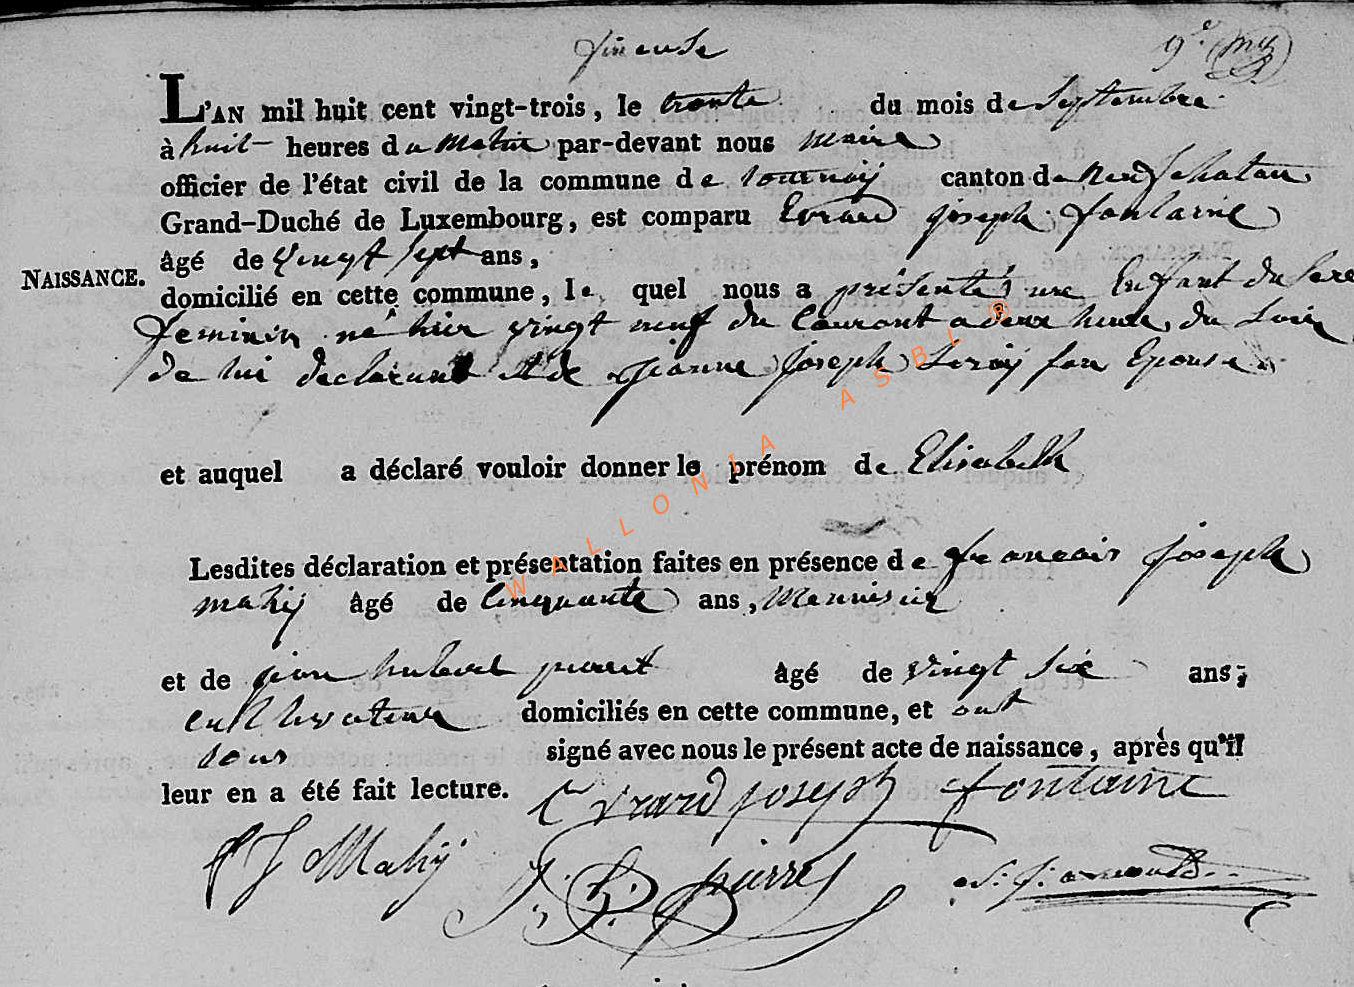 fineuse
9.e
L'AN mil huit cent vingt-trois, le trente du mois de Septembre
à huit heures du matin par-devant nous maire
officier de l'état civil de la commune de tournay canton de neufchatau
Grand-Duché de Luxembourg, est comparu Evrard joseph fontaine
âgé de vingt sept ans,
NAISSANCE.
domicilié en cette commune, le quel nous a présenté une Enfant du Sexe
feminin né hier vingt neuf du Courant a deux heure du Soir
de lui declarant et de jeanne joseph Leroy son Epouse
et auquel a déclaré vouloir donner le prénom de Elisabeth
Lesdites déclaration et présentation faites en présence de francois joseph
mahy âgé de Cinquante ans, Menuisier
et de jean hubert âgé de vingt six ans;
cultivateur domiciliés en cette commune, et ont
tous signé avec nous le présent acte de naissance, après qu'il
leur en a été fait lecture. Evrard joseph fontaine
f J Mahÿ J. h. pierret
WALLONIA ASBL ®